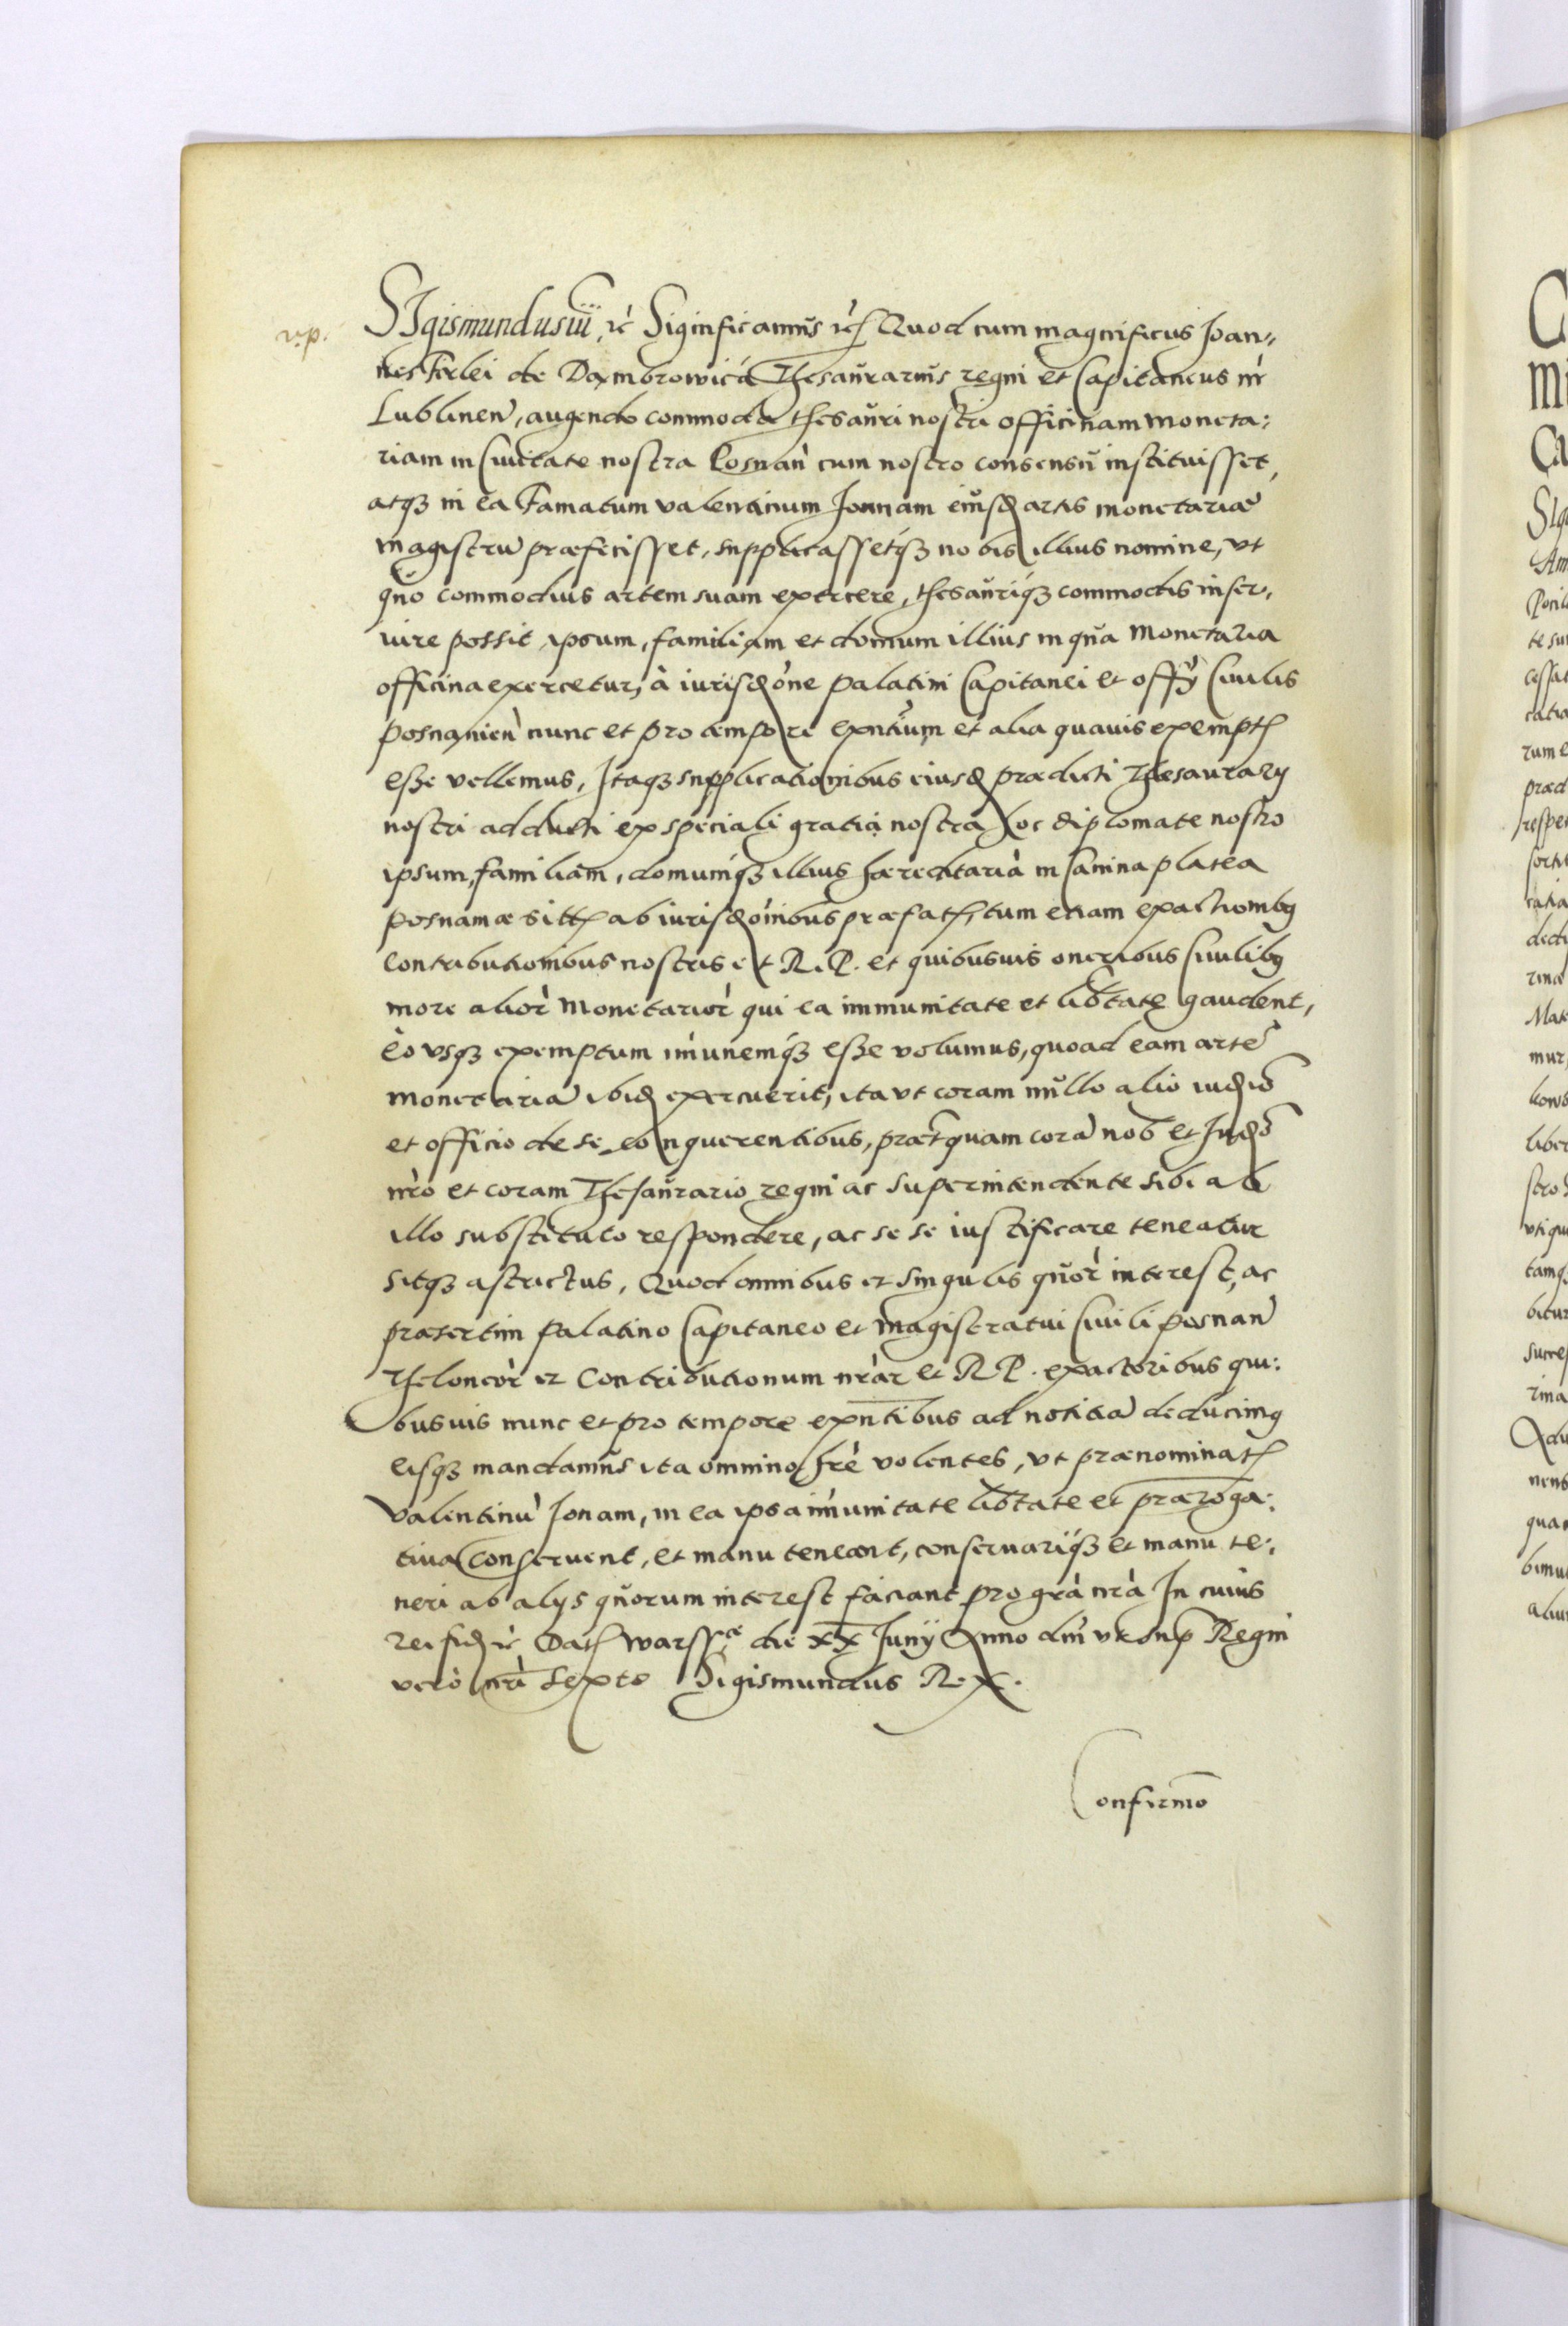 v.p.
SIgismundus iii, rc̀ Significamus rc̀ Quod cum magnificus Joan,
nes Firlei de Dambrowicà Thesaurarius regni et Capitaneus nr̀
Lublinen̄, augendo commoda thesauri nostri officinam moneta:
riam in Civitate nostra Posnan̄ cum nostro consensu instituisset,
atq3 in ea Famatum valentinum Jonnam eiusd artis monetariæ
magistrū præfecisset, supplicassetq3 nobis illius nomine, vt
quo commodius artem suam exercere, thesauriq3 commodis inser,
uire possit ipsum, familiam et domum illius in qua monetaria
officina exercetur, à iurisdōne palatini Capitanei et offÿ Ciuilis
posnanien̄ nunc et pro tempore exn̄tium et alia quauis exempt
esse vellemus, Itaq3 supplicationibus eiusd prædicti Thesaurarÿ
nostri adducti ex speciali gratia nostra hoc diplomate nostro
ipsum, familiam, domumq3 illius hæreditariā in Canina platea
posnaniæ sitt ab iurisdōnibus præfat, tum etiam exactionibg
contributionibus nostris et R. P. et quibusuis oneribus Ciuilibg
more alior̄ monetarior̄ qui ea immunitate et lib̄tate gaudent,
eo vsq3 exemptum im̄unemq3 esse volumus, quoad eam artē
monetariā ibid exercuerit, ita vt coram nullo alio iudiō
et officio de se conquerentibus, præt̄quam corā nob̄ et Judō
nr̄o et coram Thesaurario regni ac superintendente sibi ab
illo substituto respondere, ac se se iustificare teneatur
sitq3 astrictus, Quod omnibus et singulis quor̄ interest, ac
præsertim palatino Capitaneo et magistratui Ciuili posnan̄
Theloneor̄ et Contributionum nr̄ar̄ et R P. exactoribus qui:
busuis nunc et pro tempore exn̄tibus ad notitiā deducimg
eisq3 mandamus ita omnino hr̄e volentes, vt prænominat
valentinū Jonam, in ea ipsa im̄unitate lib̄tate et præroga:
tiua conseruent, et manu teneant, conseruariq3 et manu te:
neri ab alÿs quorum interest faciant pro gr̄a nr̄a In cuius
rei fid rc̀ Dat Warssæ die xx Junÿ Anno dm̄ vt sup Regni
vero nr̄i Sexto Sigismundus Rex.
Confirmō